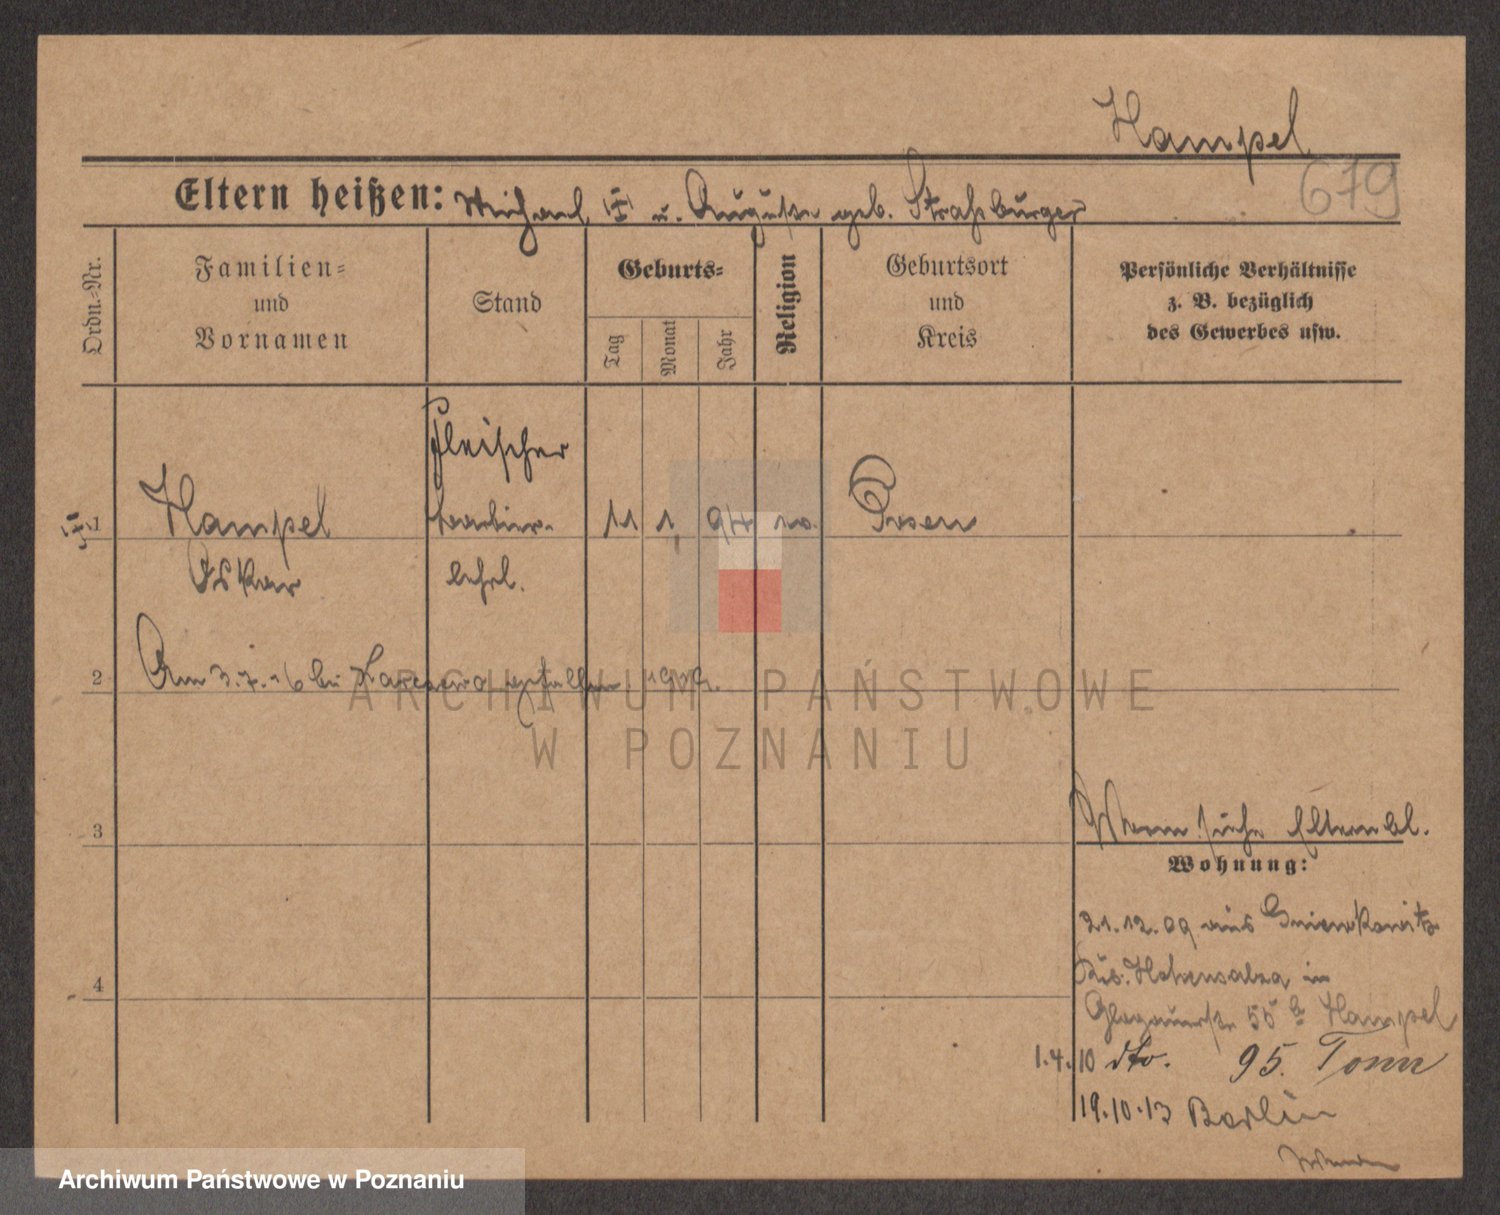 Hampel
679
Eltern heißen: Michael u. Auguste geb. Straßburger
Ordn.-Nr.
Familien-
und
Vornamen
Stand
Geburts-
Tag
Monat
Jahr
Religion
Geburtsort
und
Kreis
Persönliche Verhältnisse
z. B. bezüglich
des Gewerbes usw.
1
Hampel
Oskar
Fleischer
lehrl.
11
1.
94
Posen
2
Am 3.7.16 bei gefallen.
3
4
siehe Elternbl.
Wohnung:
21.12.09 aus
Hohensalza in
Glogauerstr. 55 b Hampel
1.4.10 dto. 95. Tonn
19.10.13 Berlin
ARCHIWUM PAŃSTWOWE
W POZNANIU
Archiwum Państwowe w Poznaniu